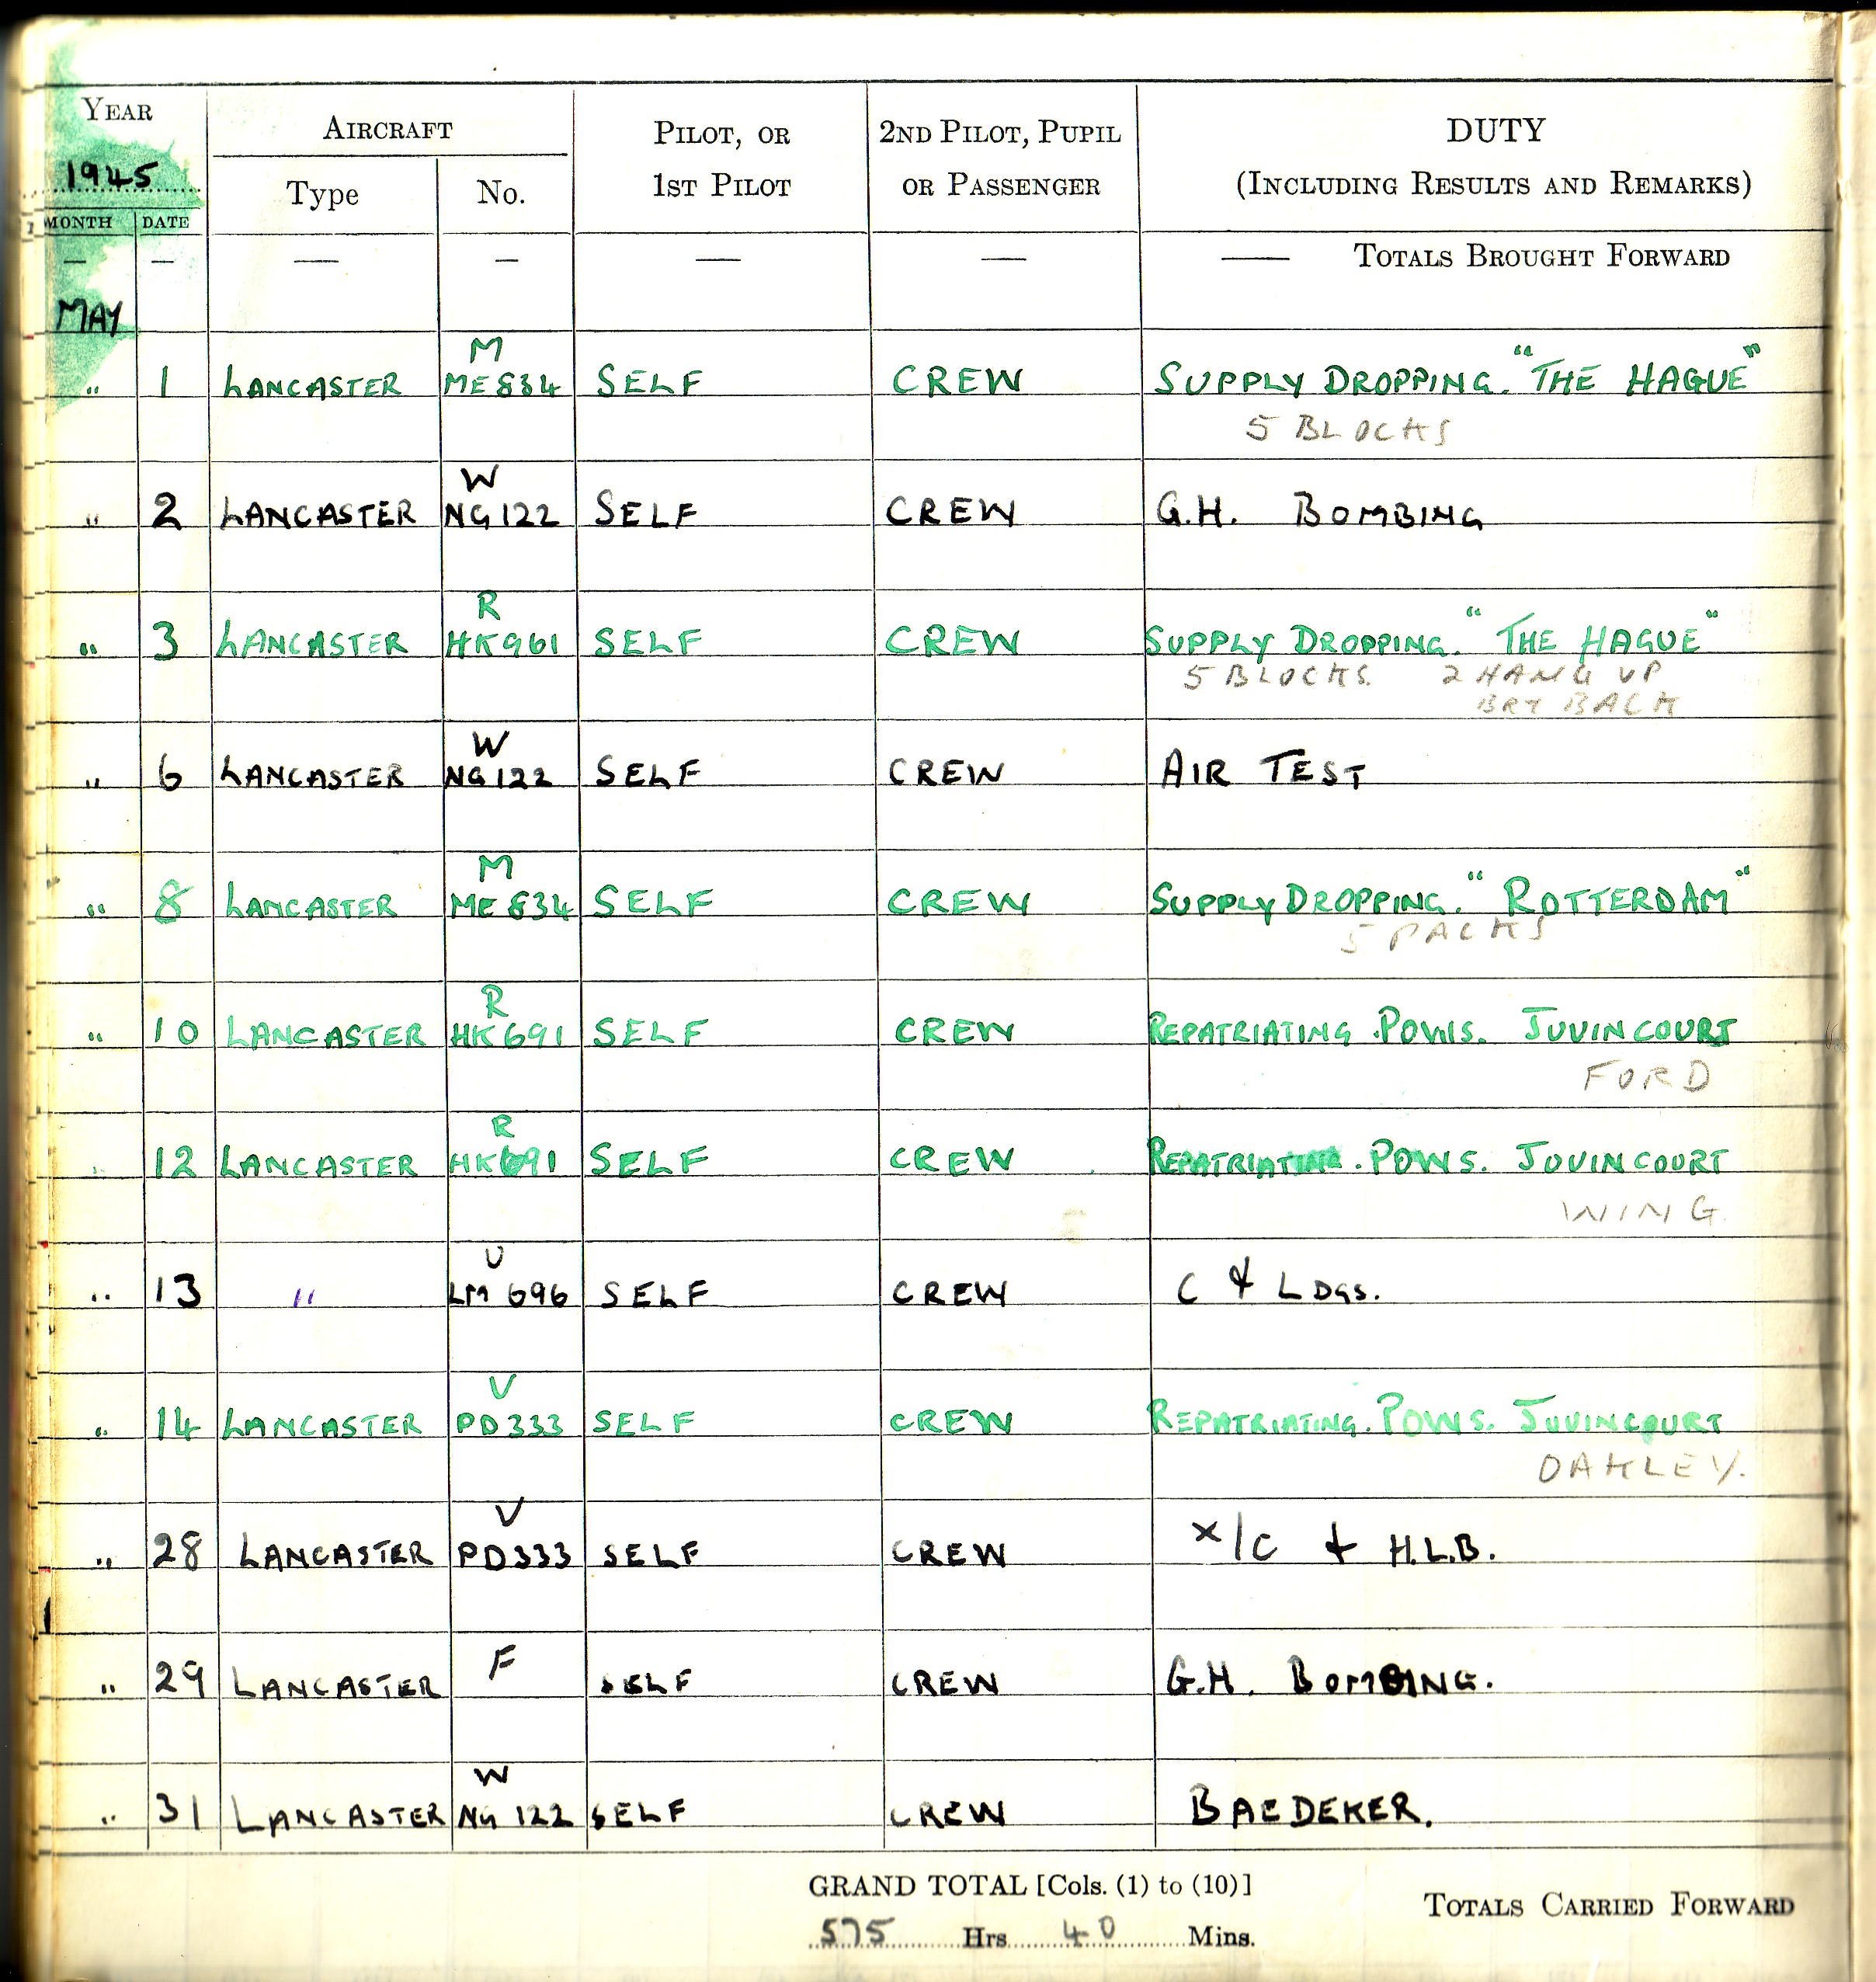 YEAR AIRCRAFT PILOT, OR 2ND PILOT, PUPIL DUTY
1945 Type No. 1ST PILOT OR PASSENGER (INCLUDING RESULTS AND REMARKS)
MONTH DATE
— — — — — — — TOTALS BROUGHT FORWARD
MAY
M
" 1 LANCASTER ME834 SELF CREW SUPPLY DROPPING. "THE HAGUE"
5 BLOCKS
W
" 2 LANCASTER NG122 SELF CREW G.H. BOMBING
R
" 3 LANCASTER HK961 SELF CREW SUPPLY DROPPING. "THE HAGUE"
5 BLOCKS. 2 HANG UP
BRT BACK
W
" 6 LANCASTER NG122 SELF CREW AIR TEST
M
" 8 LANCASTER ME834 SELF CREW SUPPLY DROPPING. "ROTTERDAM"
5 PACKS
R
" 10 LANCASTER HK691 SELF CREW REPATRIATING. POWS. JUVINCOURT
FORD
R
" 12 LANCASTER HK691 SELF CREW REPATRIATING. POWS. JUVINCOURT
WING
U
" 13 " LM 696 SELF CREW C & LDGS.
V
" 14 LANCASTER PD333 SELF CREW REPATRIATING. POWS. JUVINCOURT
OAKLEY.
V
" 28 LANCASTER PD333 SELF CREW X/C & H.L.B.
F
" 29 LANCASTER SELF CREW G.H. BOMBING.
W
" 31 LANCASTER NG 122 SELF CREW BAEDEKER.
GRAND TOTAL [Cols. (1) to (10)] TOTALS CARRIED FORWARD
575 Hrs. 40 Mins.